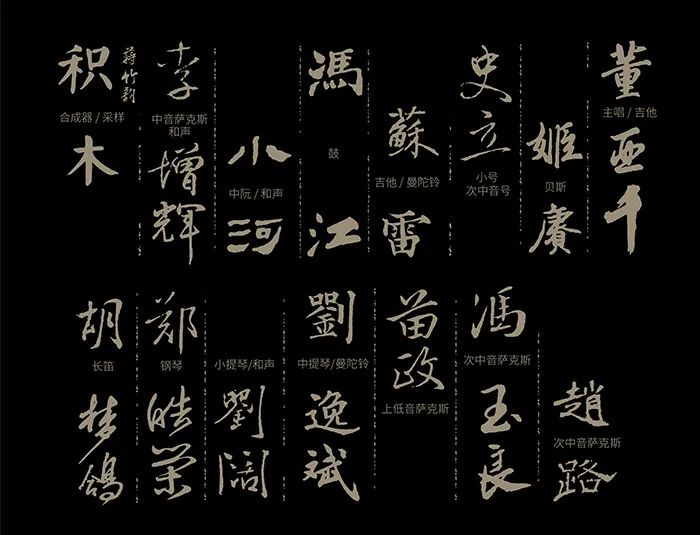 董
主唱 / 吉他
亚千
姬
贝斯
赓
史立
小号
次中音号
蘇
吉他 / 曼陀铃
雷
馮
鼓
江
小
中阮 / 和声
河
李
中音萨克斯
和声
增輝
蔣竹韵
积
合成器 / 采样
木
趙
次中音萨克斯
路
馮
次中音萨克斯
玉良
苗政
上低音萨克斯
劉
中提琴/曼陀铃
逸斌
小提琴/和声
劉闊
郑
钢琴
皓荣
胡
长笛
梦鴿